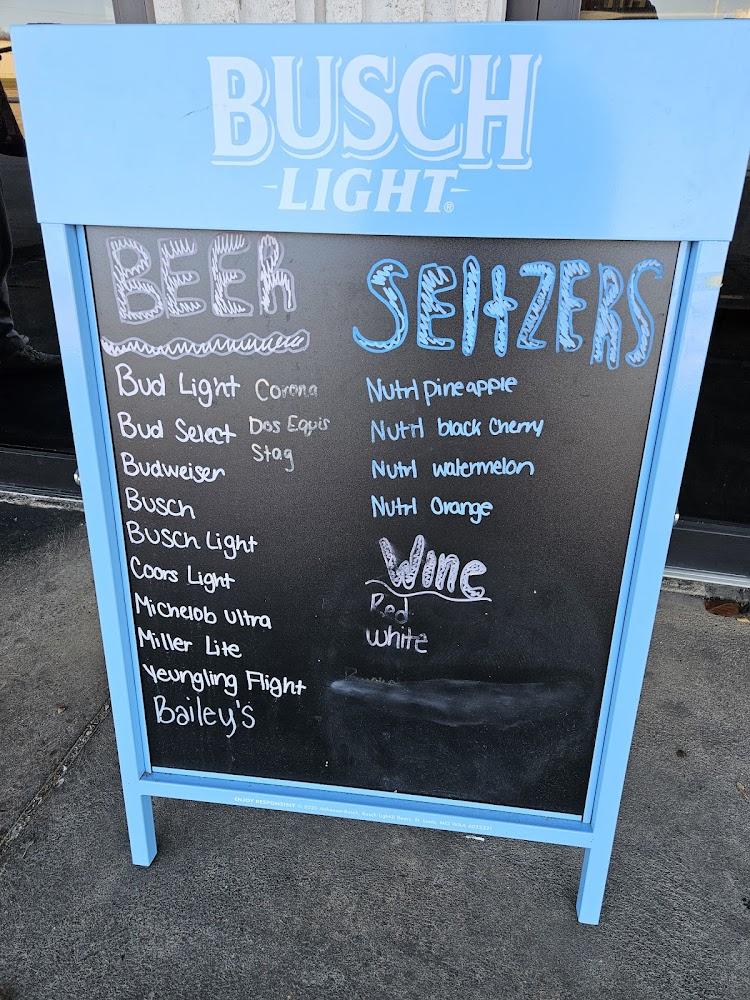 BUSCH
LIGHT®
BEER
Bud Light
Bud Select
Budweiser
Busch
Busch Light
Coors Light
Michelob Ultra
Miller Lite
Yeungling Flight
Bailey's
Corona
Dos Eqpis
Stag
SEltZERS
Nutrl pineapple
Nutrl black cherry
Nutrl watermelon
Nutrl Orange
Wine
Red
White
ENJOY RESPONSIBLY